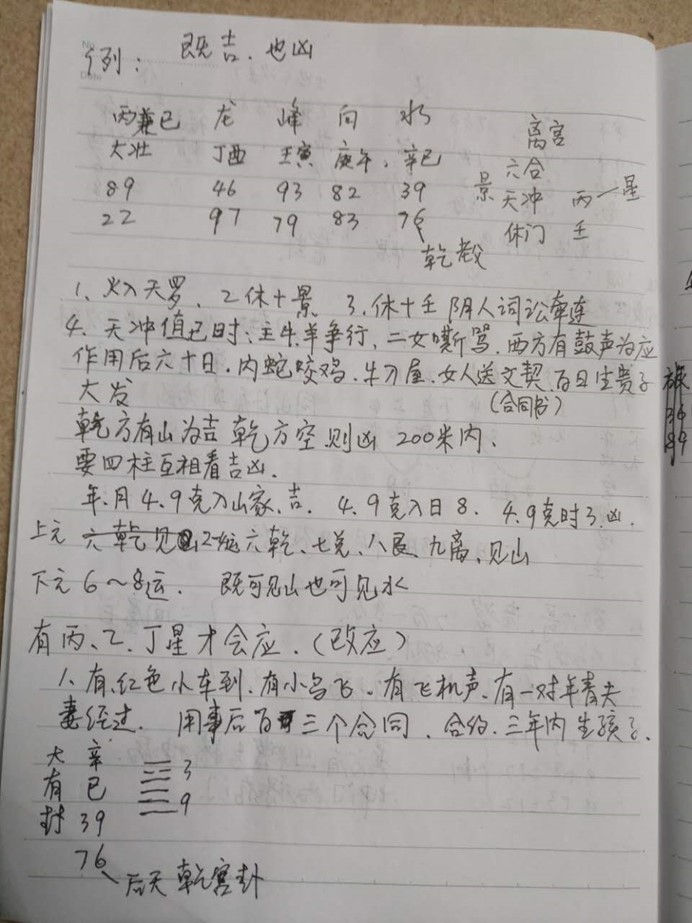 例： 既吉.也凶
丙兼巳 龙 峰 向 水 离宫
大壮 丁酉 壬寅 庚午. 辛巳 六合
89 46 93 82 39 景 天冲 丙一星
22 97 79 83 76 休门 壬
乾教
1、火入天罗. 2休十景 3.休十壬 阴人词讼牵连
4. 天冲值巳时:主牛羊争行.二女嘶骂.西方有鼓声为应
作用后六十日.内蛇咬鸡.牛刀屋.女人送文契.百日生贵子
大发 (合同书)
乾方有山为吉 乾方空则凶 200米内.
要四柱互相看吉凶.
年.月4.9克入山家.吉. 4.9克入日8. 4.9克时3.凶.
上元 六乾.七兑.八艮.九离.见山
下元6～8运. 既可见山也可见水
有丙、乙、丁星才会应.(改应)
1.有.红色小车到.有小鸟飞.有飞机声.有一对年青夫
妻经过. 用事后百 三个合同.合约.三年内生孩子.
大 辛 3
有 巳 9
卦 39
76 后天乾宫卦
36
89